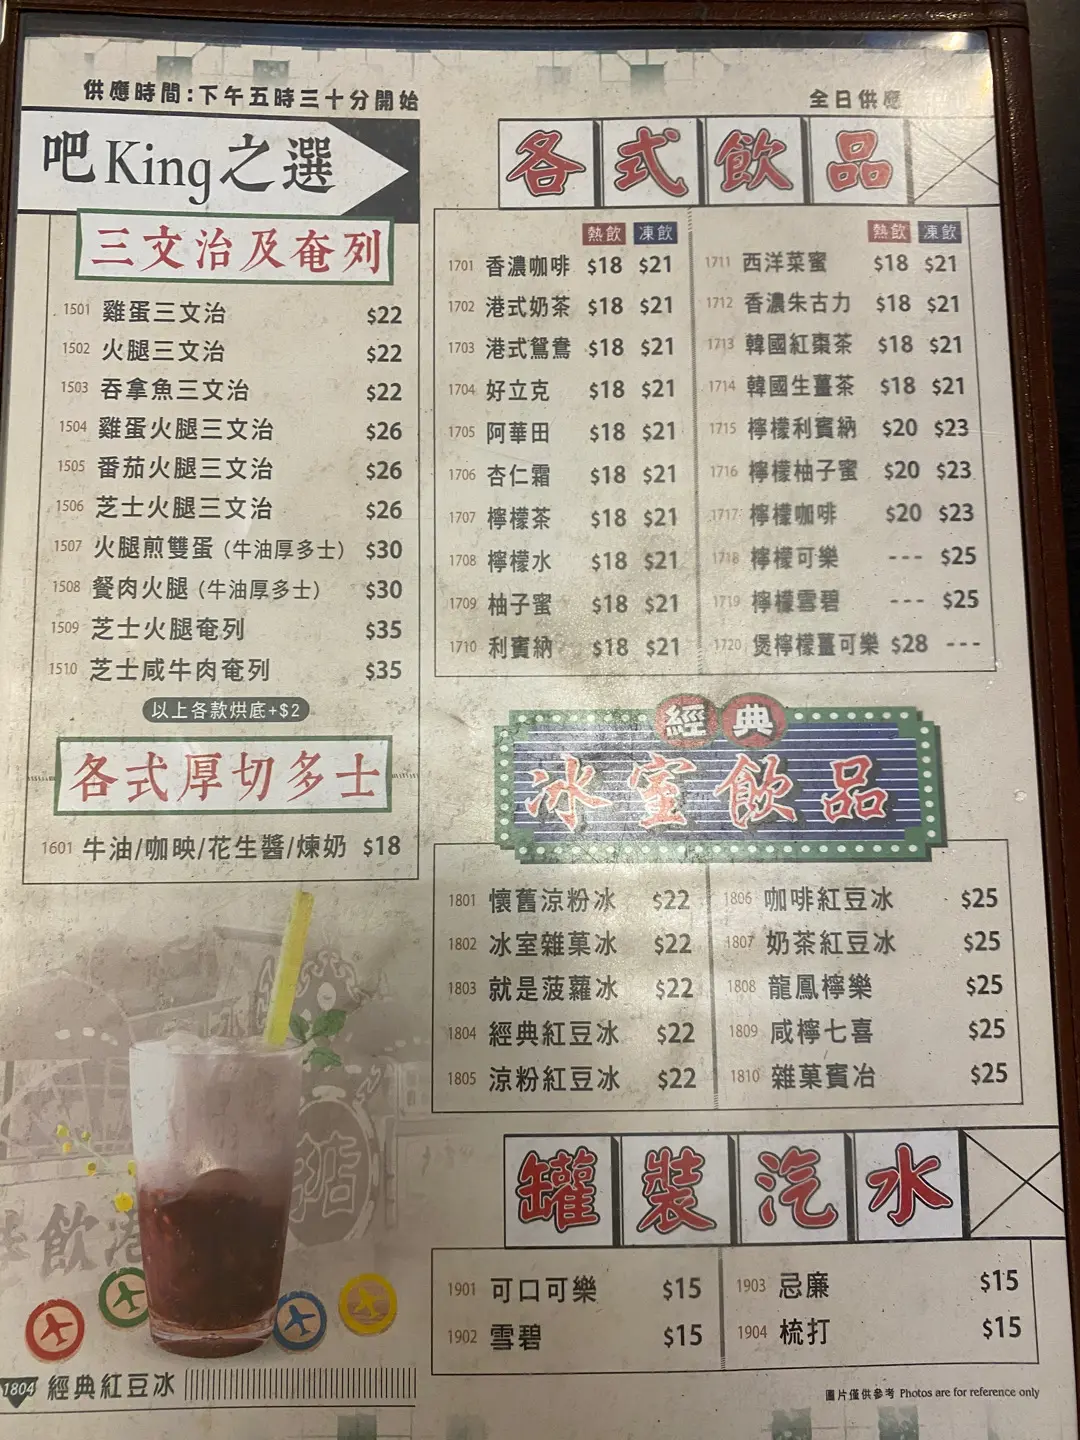 供應時間:下午五時三十分開始
吧King之選
三文治及奄列
1501 雞蛋三文治 $22
1502 火腿三文治 $22
1503 吞拿魚三文治 $22
1504 雞蛋火腿三文治 $26
1505 番茄火腿三文治 $26
1506 芝士火腿三文治 $26
1507 火腿煎雙蛋 (牛油厚多士) $30
1508 餐肉火腿 (牛油厚多士) $30
1509 芝士火腿奄列 $35
1510 芝士咸牛肉奄列 $35
以上各款烘底+$2
各式厚切多士
1601 牛油/咖映/花生醬/煉奶 $18
1804 經典紅豆冰
全日供應
各式飲品
熱飲 凍飲
1701 香濃咖啡 $18 $21
1702 港式奶茶 $18 $21
1703 港式鴛鴦 $18 $21
1704 好立克 $18 $21
1705 阿華田 $18 $21
1706 杏仁霜 $18 $21
1707 檸檬茶 $18 $21
1708 檸檬水 $18 $21
1709 柚子蜜 $18 $21
1710 利賓納 $18 $21
熱飲 凍飲
1711 西洋菜蜜 $18 $21
1712 香濃朱古力 $18 $21
1713 韓國紅棗茶 $18 $21
1714 韓國生薑茶 $18 $21
1715 檸檬利賓納 $20 $23
1716 檸檬柚子蜜 $20 $23
1717 檸檬咖啡 $20 $23
1718 檸檬可樂 --- $25
1719 檸檬雪碧 --- $25
1720 煲檸檬薑可樂 $28 ---
經典
冰室飲品
1801 懷舊涼粉冰 $22
1802 冰室雜菓冰 $22
1803 就是菠蘿冰 $22
1804 經典紅豆冰 $22
1805 涼粉紅豆冰 $22
1806 咖啡紅豆冰 $25
1807 奶茶紅豆冰 $25
1808 龍鳳檸樂 $25
1809 咸檸七喜 $25
1810 雜菓賓冶 $25
罐裝汽水
1901 可口可樂 $15
1902 雪碧 $15
1903 忌廉 $15
1904 梳打 $15
圖片僅供參考 Photos are for reference only